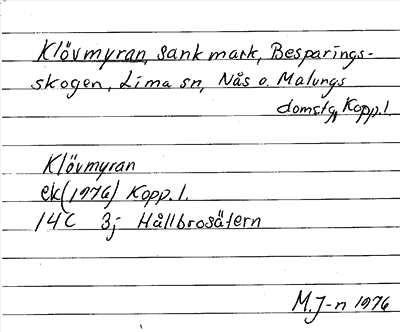 Klövmyran, sank mark, Besparings-
skogen, Lima sn, Nås o. Malungs
domsg, Kopp.l.
Klövmyran
ek (1976) Kopp. l.
14C 3j Hållbrosätern
M.J-n 1976